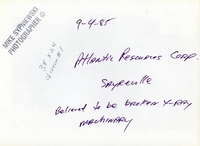 MIKE SYPNIEWSKI
PHOTOGRAPHER ©
9-4-85
Atlantic Resources Corp.
Sayreville
Believed to be broken X-ray
machinary